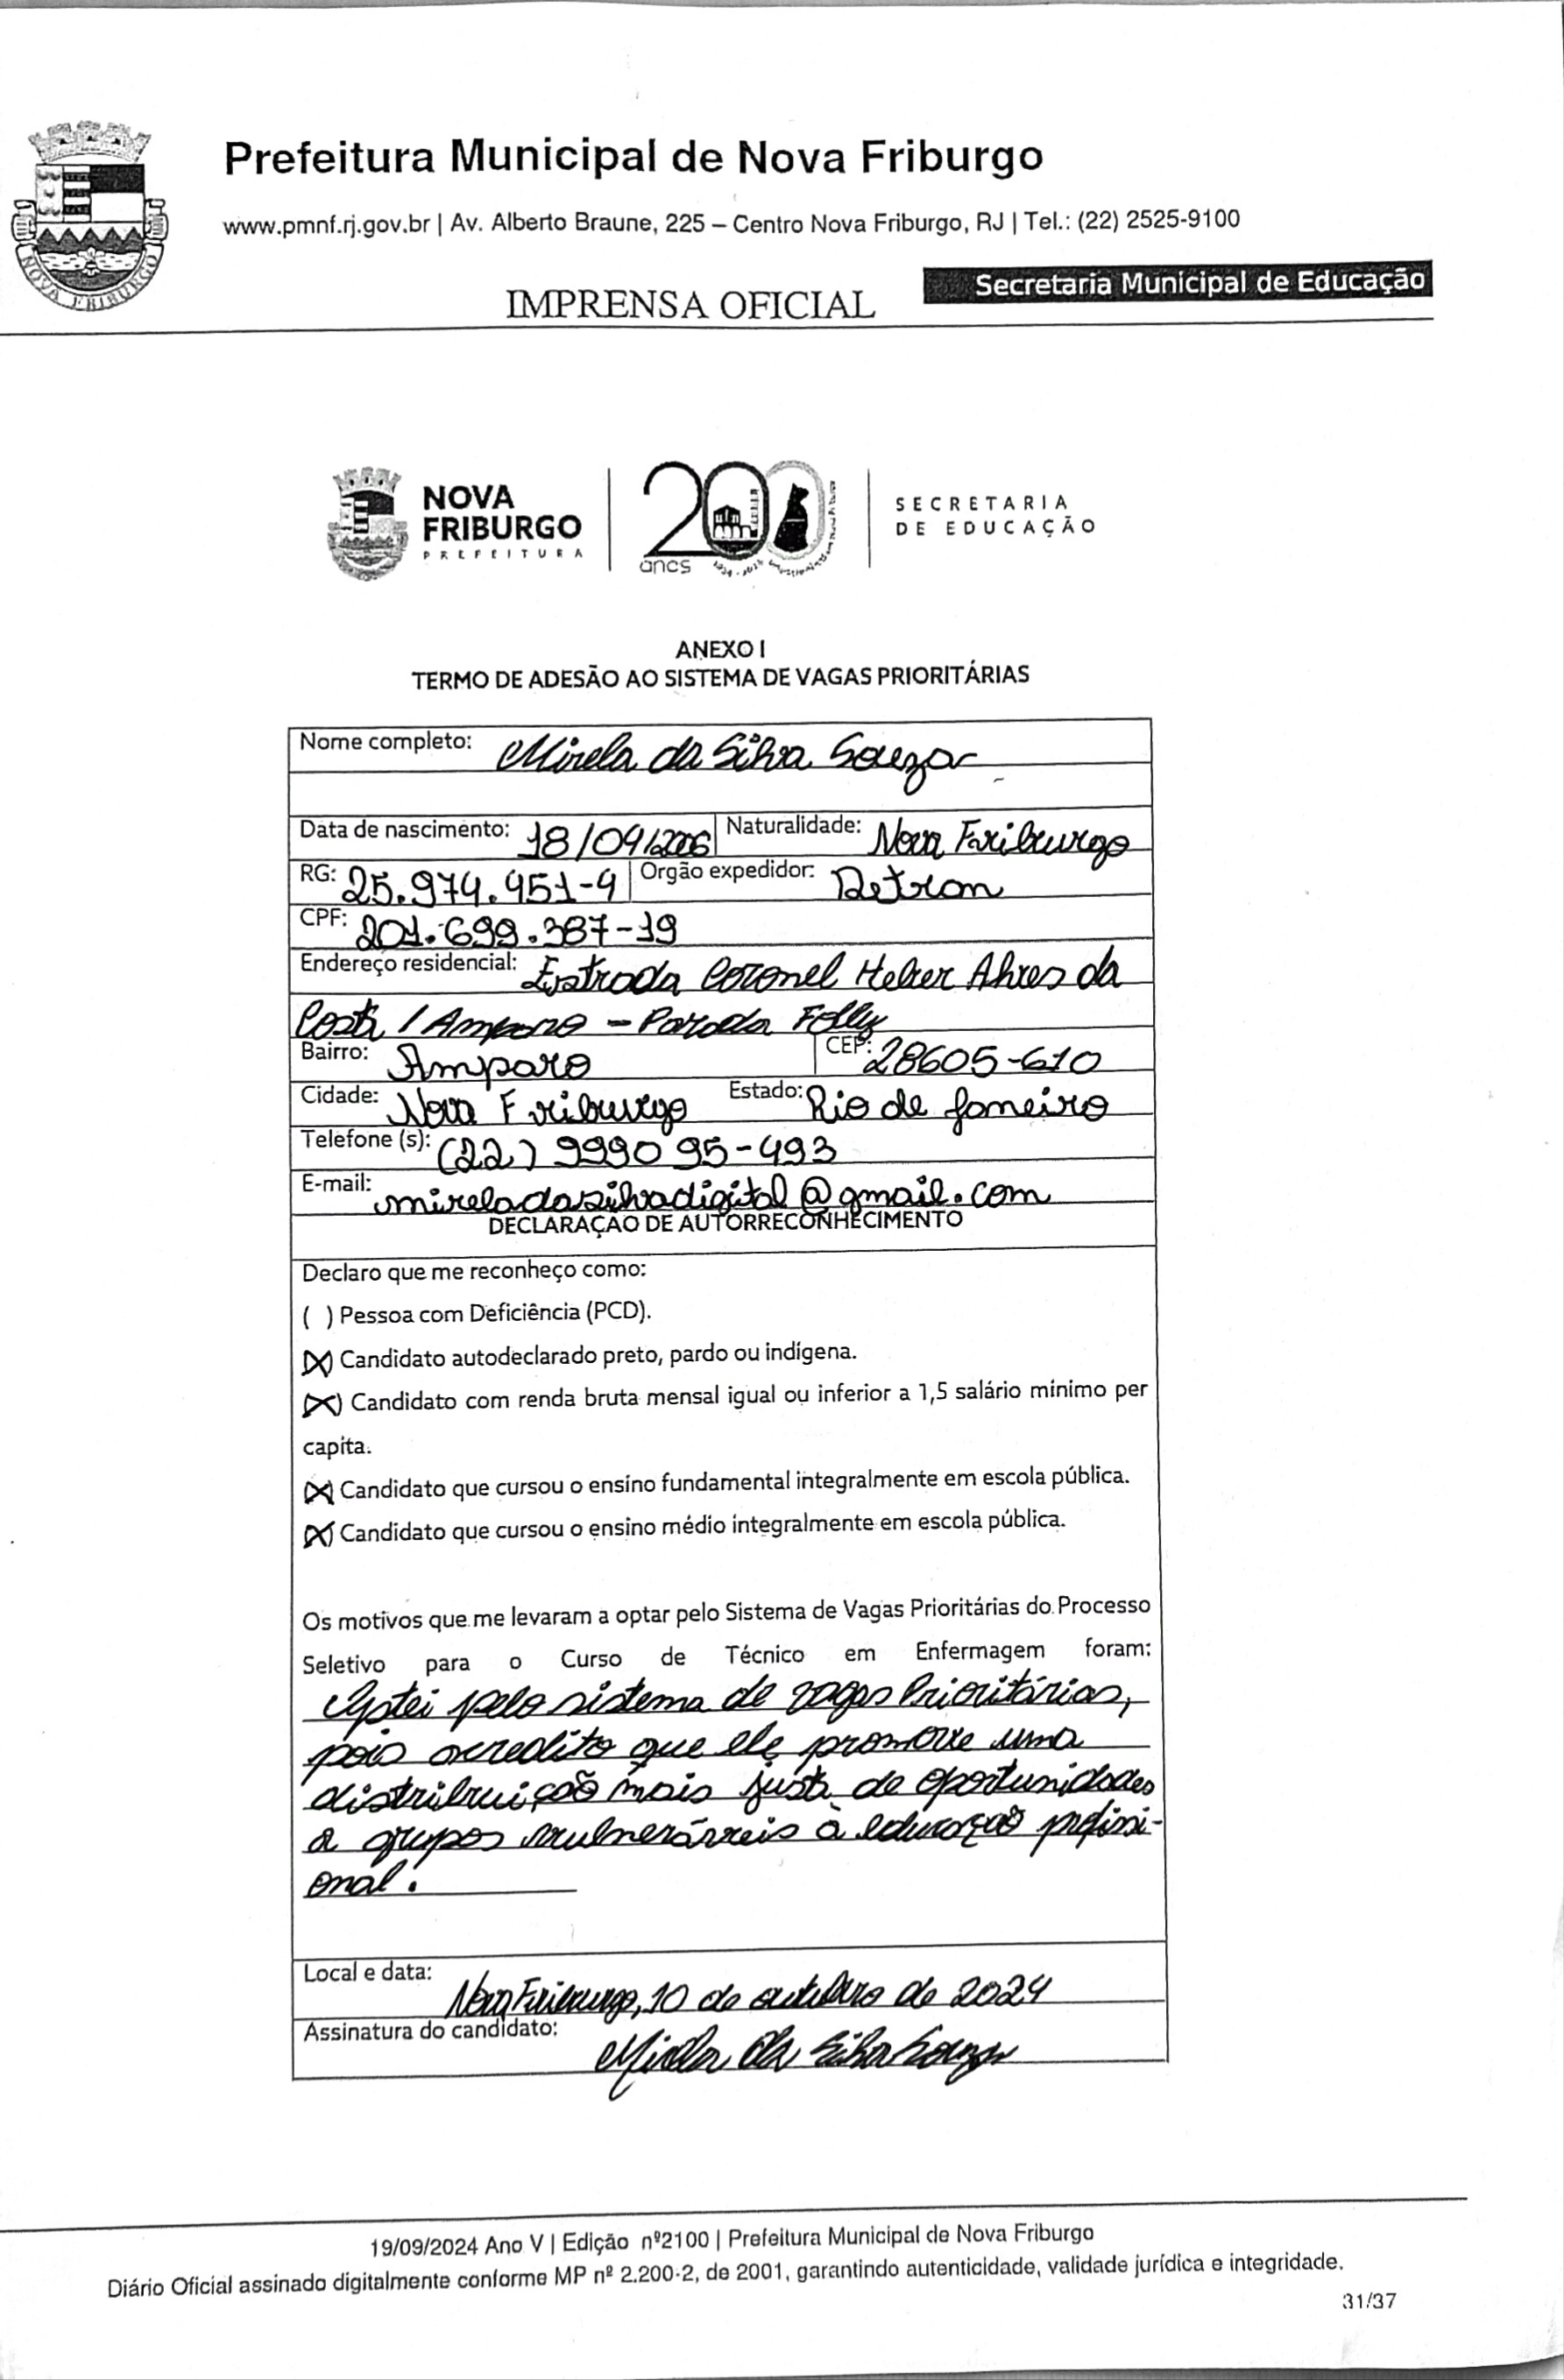 Prefeitura Municipal de Nova Friburgo
www.pmnf.rj.gov.br | Av. Alberto Braune, 225 – Centro Nova Friburgo, RJ | Tel.: (22) 2525-9100
Secretaria Municipal de Educação
IMPRENSA OFICIAL
NOVA FRIBURGO
NOVA
FRIBURGO
PREFEITURA
200
anos
SECRETARIA
DE EDUCAÇÃO
ANEXO I
TERMO DE ADESÃO AO SISTEMA DE VAGAS PRIORITÁRIAS
Nome completo: Mirela da Silva Souza
Data de nascimento: 18/09/2006 Naturalidade: Nova Friburgo
RG: 25.974.951-9 Orgão expedidor: Detran
CPF: 201.699.387-19
Endereço residencial: Estrada Coronel Heber Alves da
Costa / Amparo - Parada Folly
Bairro: Amparo CEP: 28605-610
Cidade: Nova Friburgo Estado: Rio de Janeiro
Telefone (s): (22) 999095-493
E-mail: mireladasilvadigital@gmail.com
DECLARAÇÃO DE AUTORRECONHECIMENTO
Declaro que me reconheço como:
( ) Pessoa com Deficiência (PCD).
(X) Candidato autodeclarado preto, pardo ou indígena.
(X) Candidato com renda bruta mensal igual ou inferior a 1,5 salário mínimo per
capita.
(X) Candidato que cursou o ensino fundamental integralmente em escola pública.
(X) Candidato que cursou o ensino médio integralmente em escola pública.
Os motivos que me levaram a optar pelo Sistema de Vagas Prioritárias do Processo
Seletivo para o Curso de Técnico em Enfermagem foram:
Optei pelo sistema de vagas Prioritárias,
pois acredito que ele promove uma
distribuição mais justa de oportunidades
a grupos vulneráveis à educação profissi-
onal.
Local e data: Nova Friburgo, 10 de outubro de 2024
Assinatura do candidato: Mirela da Silva Souza
19/09/2024 Ano V | Edição nº2100 | Prefeitura Municipal de Nova Friburgo
Diário Oficial assinado digitalmente conforme MP nº 2.200-2, de 2001, garantindo autenticidade, validade jurídica e integridade.
31/37